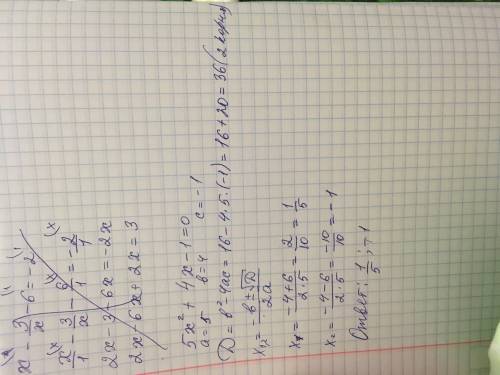 x - 3/x - 6 = -2
x/1 - 3/x - 6/1 = -2/1
2x - 3 - 6x = -2x
2x - 6x + 2x = 3
5x² + 4x - 1 = 0
a = 5 b = 4 c = -1
D = b² - 4ac = 16 - 4·5·(-1) = 16 + 20 = 36 (2 корня)
x₁,₂ = (-b ± √D)/2a
x₁ = (-4+6)/(2·5) = 2/10 = 1/5
x₂ = (-4-6)/(2·5) = -10/10 = -1
Ответ: 1/5; -1